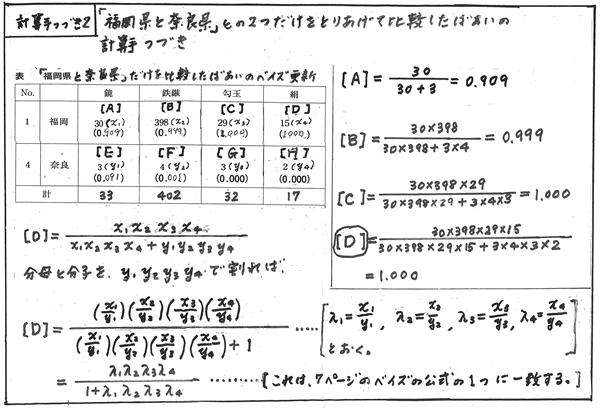 計算手つづき2
「福岡県と奈良県」との2つだけをとりあげて比較したばあいの
計算手つづき
表 「福岡県と奈良県」だけを比較したばあいのベイズ更新
No. 鏡 鉄鏃 勾玉 絹
[A] [B] [C] [D]
1 福岡 30(x₁) 398(x₂) 29(x₃) 15(x₄)
(0.909) (0.999) (1.000) (1.000)
[E] [F] [G] [H]
4 奈良 3(y₁) 4(y₂) 3(y₃) 2(y₄)
(0.091) (0.001) (0.000) (0.000)
計 33 402 32 17
[A]=30/(30+3)=0.909
[B]=(30×398)/(30×398+3×4)=0.999
[C]=(30×398×29)/(30×398×29+3×4×3)=1.000
[D]=(30×398×29×15)/(30×398×29×15+3×4×3×2)
=1.000
[D]=(x₁x₂x₃x₄)/(x₁x₂x₃x₄+y₁y₂y₃y₄)
分母と分子を、y₁y₂y₃y₄で割れば、
[D]=((x₁/y₁)(x₂/y₂)(x₃/y₃)(x₄/y₄))/((x₁/y₁)(x₂/y₂)(x₃/y₃)(x₄/y₄)+1) ……[λ₁=x₁/y₁, λ₂=x₂/y₂, λ₃=x₃/y₃, λ₄=x₄/y₄
とおく。]
=(λ₁λ₂λ₃λ₄)/(1+λ₁λ₂λ₃λ₄) ………[これは、7ページのベイズの公式の1つに一致する。]